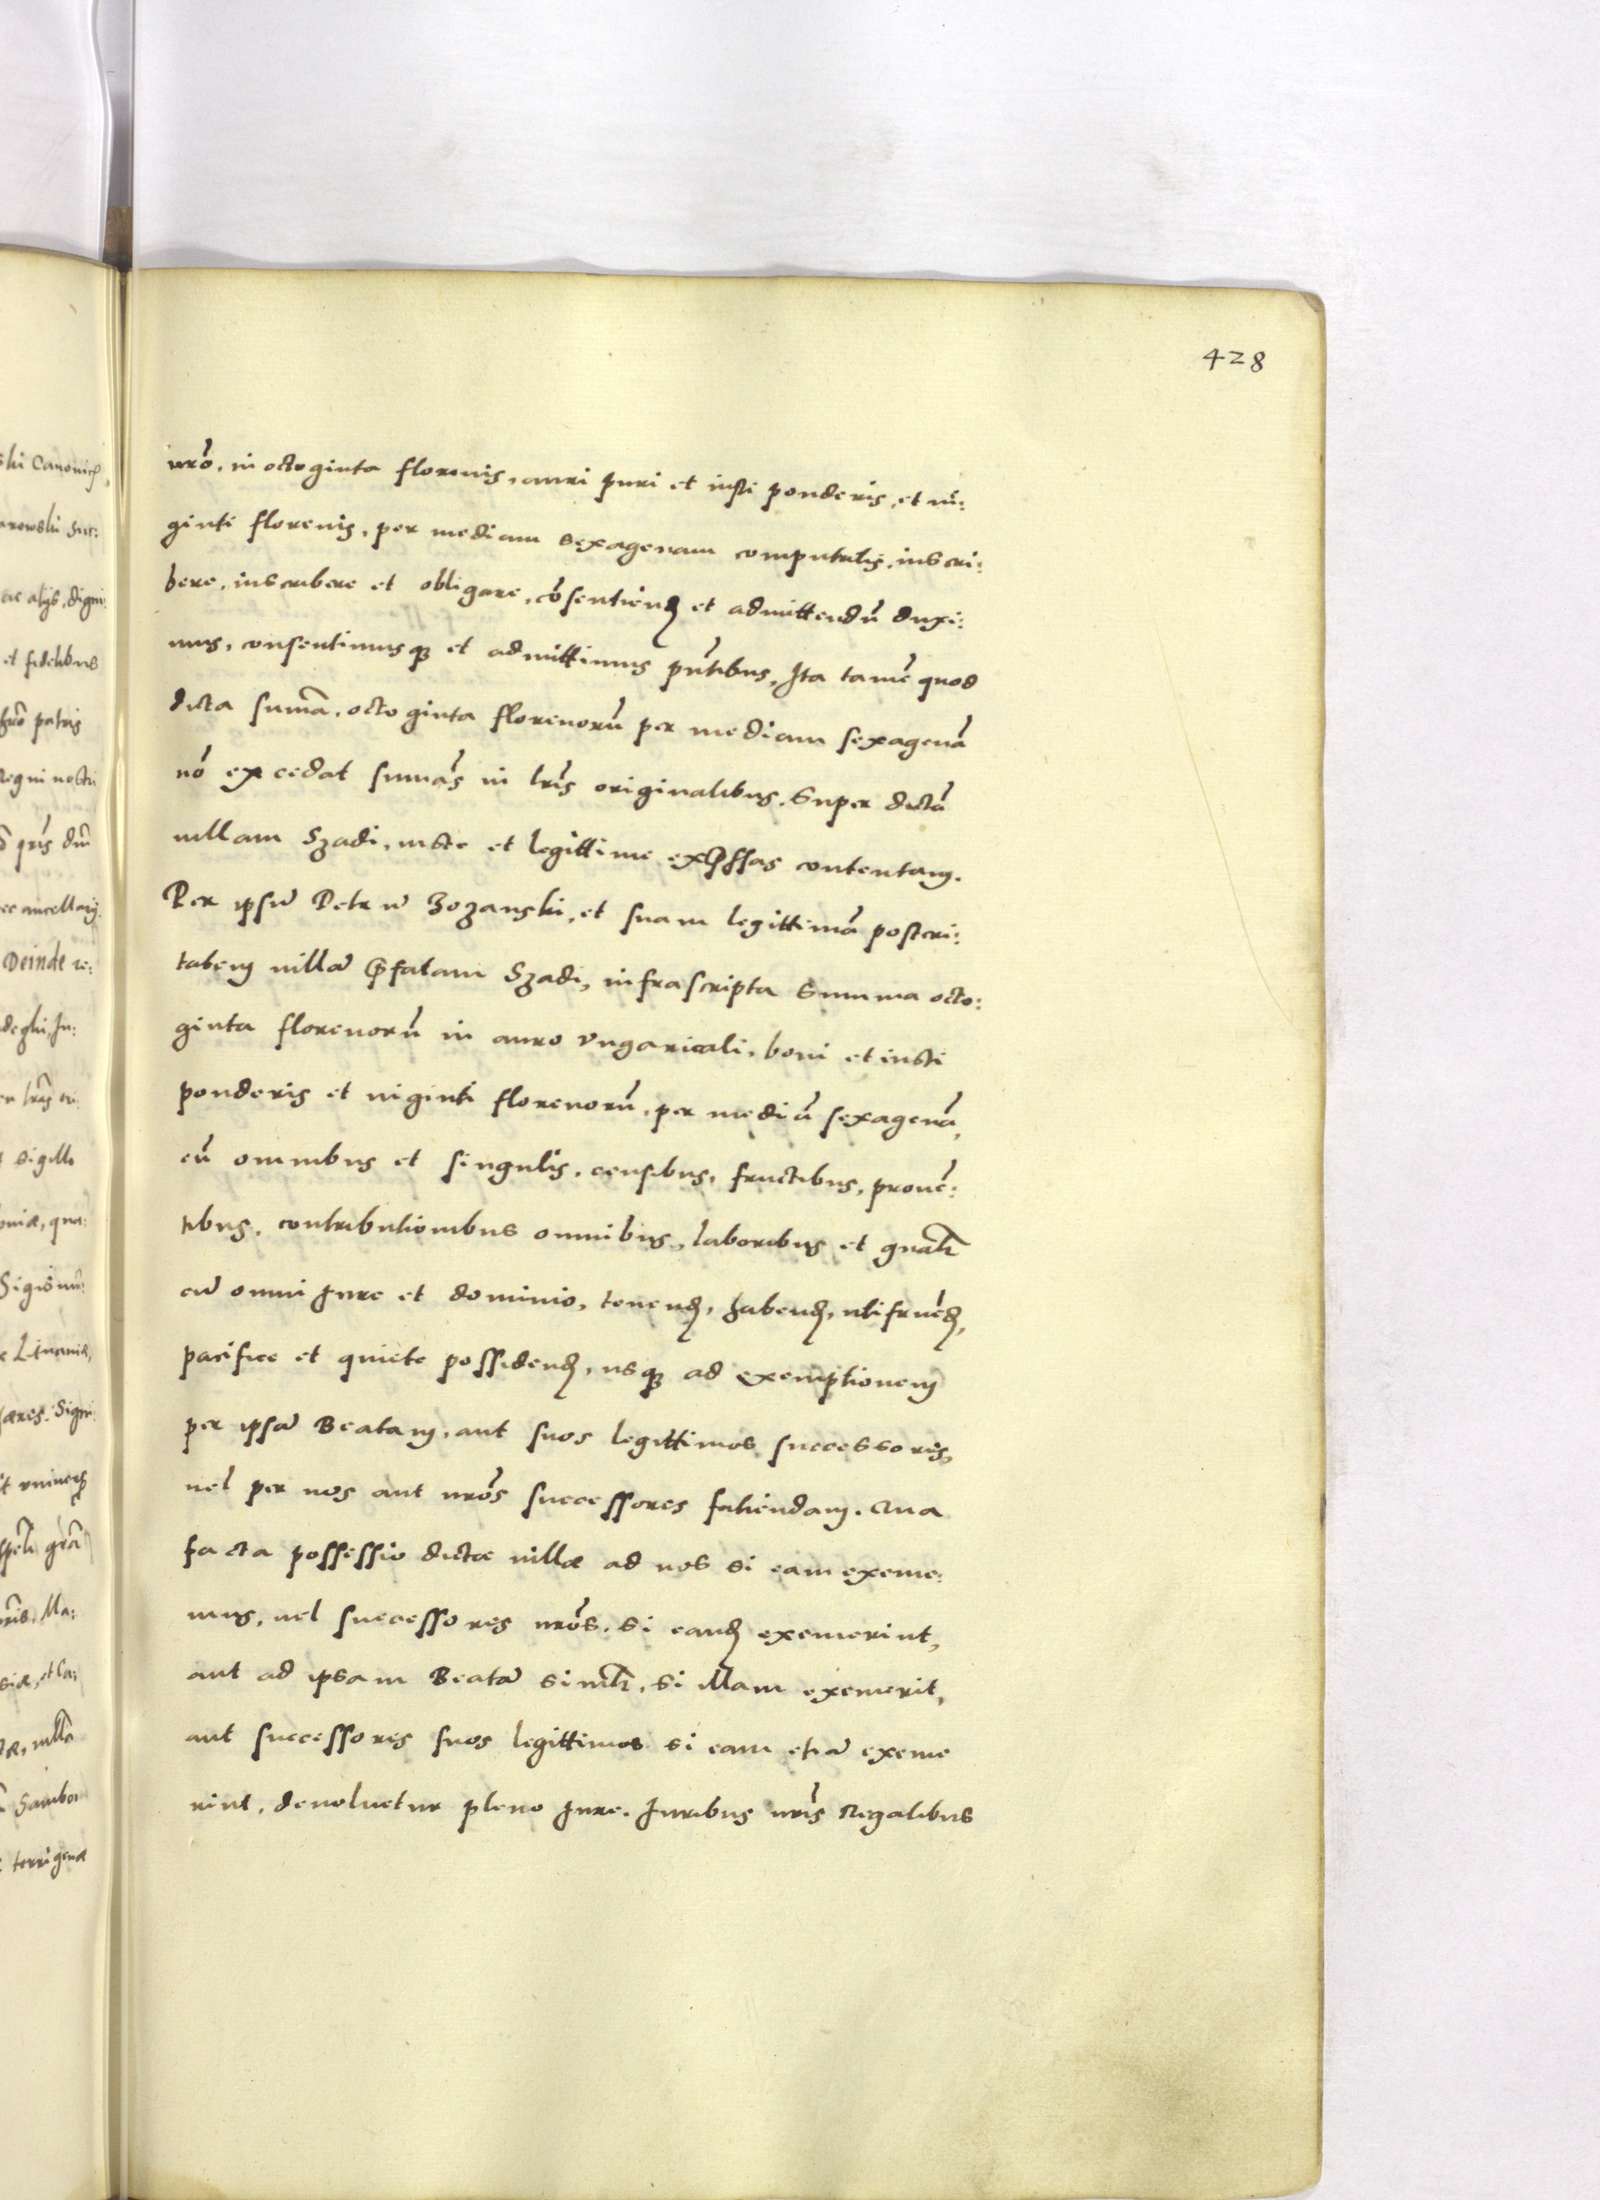 428
nrō, in octoginta florenis, auri puri et iusti ponderis, et ui:
ginti florenis, per mediam sexagenam computatis, inscri:
bere, inscribere et obligare, cōsentiend et admittendū duxi:
mus, consentimusq et admittimus pñtibus, Ita tamē quod
dicta summā, octoginta florenorū per mediam sexagenā
nō excedat summās in lris originalibus, super dictā
uillam Szadi, iuste et legittime expssas contentam.
Per ipsū Petrū Bozanski, et suam legittimā posteri:
tatem uillā pfatam Szadi, infrascripta summa octo:
ginta florenorū in auro vngaricali, boni et iusti
ponderis et uiginti florenorū, per mediā sexagenā,
cū omnibus et singulis, censibus, fructibus, prouē:
tibus, contributionibus omnibus, laboribus et gnalr
cū omni Jure et dominio, tenend, habend, utifruēd,
pacifice et quiete possidend, usq ad exemptionem
per ipsā Beatam, aut suos legittimos successores,
uel per nos aut nrōs successores fatiendam. Qua
facta possessio dictæ uillæ ad nos si eam exeme:
mus, uel successores nrōs, si eand exemerint,
aut ad ipsam Beatā simlr, si illam exemerit,
aut successores suos legittimos si eam etiā exeme
rint, deuoluetur pleno Jure. Juribus nris Regalibus
shi Canonic
et fidelibus
patris
Regni nostri
Deinde re:
sigillo
quæ:
Sigismū:
Ma:
Sambor
terrigenæ